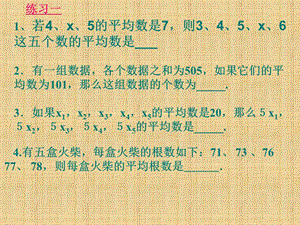 练习一
1、若4、x、5的平均数是7，则3、4、5、x、6
这五个数的平均数是___
2．有一组数据，各个数据之和为505，如果它们的平
均数为101，那么这组数据的个数为_____．
3．如果x₁，x₂，x₃，x₄，x₅的平均数是20．那么５x₁，
５x₂，５x₃，５x₄，５x₅的平均数是______．
4.有五盒火柴，每盒火柴的根数如下：71、73 、76
77、 78，则每盒火柴的平均根数是______．